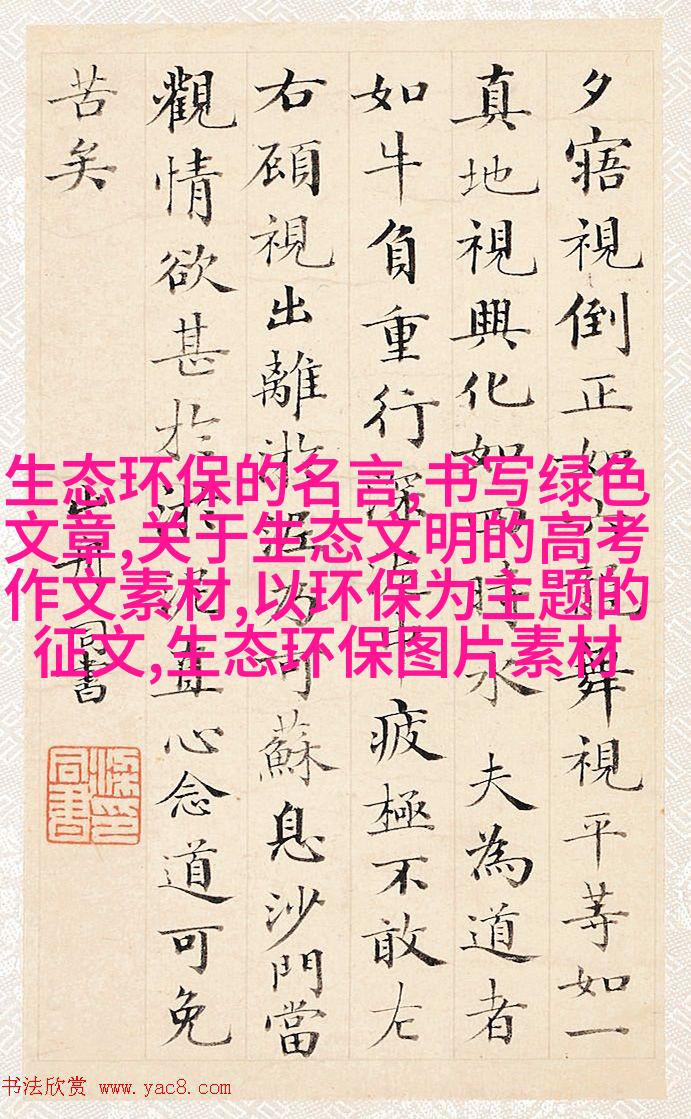 夕寤視倒正如龍舞視平等如一
真地視興化如四時木 夫為道者
如牛負重行深泥中疲極不敢左
右顧視出離淤泥乃可蘇息沙門當
觀情欲甚於淤泥直心念道可免
苦矣
山舟同書
梁印同書
生态环保的名言,书写绿色
文章,关于生态文明的高考
作文素材,以环保为主题的
征文,生态环保图片素材
书法欣赏 www.yac8.com